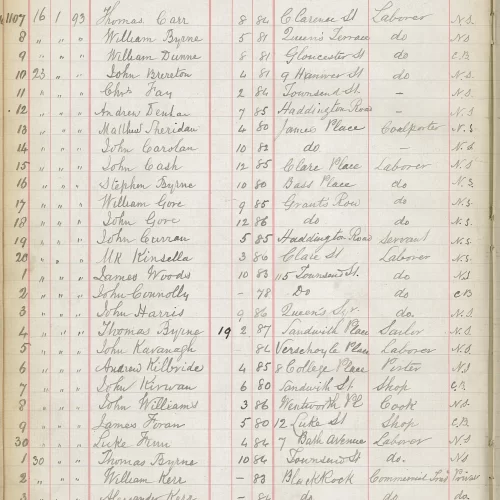 1107 16 1 93 Thomas Carr 8 84 Clarence St Laborer N.S.
8 " " " William Byrne 5 81 Queen's Terrace do N.S.
9 " " " William Dunne 8 81 Gloucester St do C.B
10 23 " " John Brereton 4 81 9 Hanover St do N.S.
11 " " " Chrs Fay 2 84 Townsend St. – N.S.
12 " " " Andrew 7 85 Haddington Road – N.S.
13 " " " Matthus Sheridan 4 80 James Place Coalporter N.S
14 " " " John Carolan 10 82 do – N.S
15 " " " John Cash 12 85 Clare Place Laborer N.S.
16 " " " Stephen Byrne 10 80 Bass Place do N.S.
17 " " " William Gore 9 85 Grants Row do N.S.
18 " " " John Gore 12 86 do do N.S.
19 " " " John Curran 5 85 Haddington Road Servant N.S.
20 " " " Mk Kinsella 3 86 Clare St Laborer N.S.
1 " " " James Woods 10 83 115 Townsend St. do N.S
2 " " " John Connolly – 78 Do do C.B
3 " " " John Harris 9 86 Queen's Sqr. do. N.S.
4 " " " Thomas Byrne 19 2 87 Sandwith Place Sailor N.S.
5 " " " John Kavanagh - 84 Verschoyle Place Laborer N.S.
6 " " " Andrew Kilbride 4 85 8 College Place Porter N.S.
7 " " " John Kirwan 6 80 Sandwith St. Shop C.B.
8 " " " John Williams 3 86 Wentworth Pl Cook N.S.
9 " " " James Foran 5 80 12 Luke St Shop C.B.
30 " " " Luke Finn 4 84 7 Bath Avenue Laborer N.S.
1 30 " " Thomas Byrne 10 84 Townsend St do. N.S
2 " " " William Kerr – 83 Blackrock Commercial Trav
3 " " " Alexander Kerr – 84 do do do.